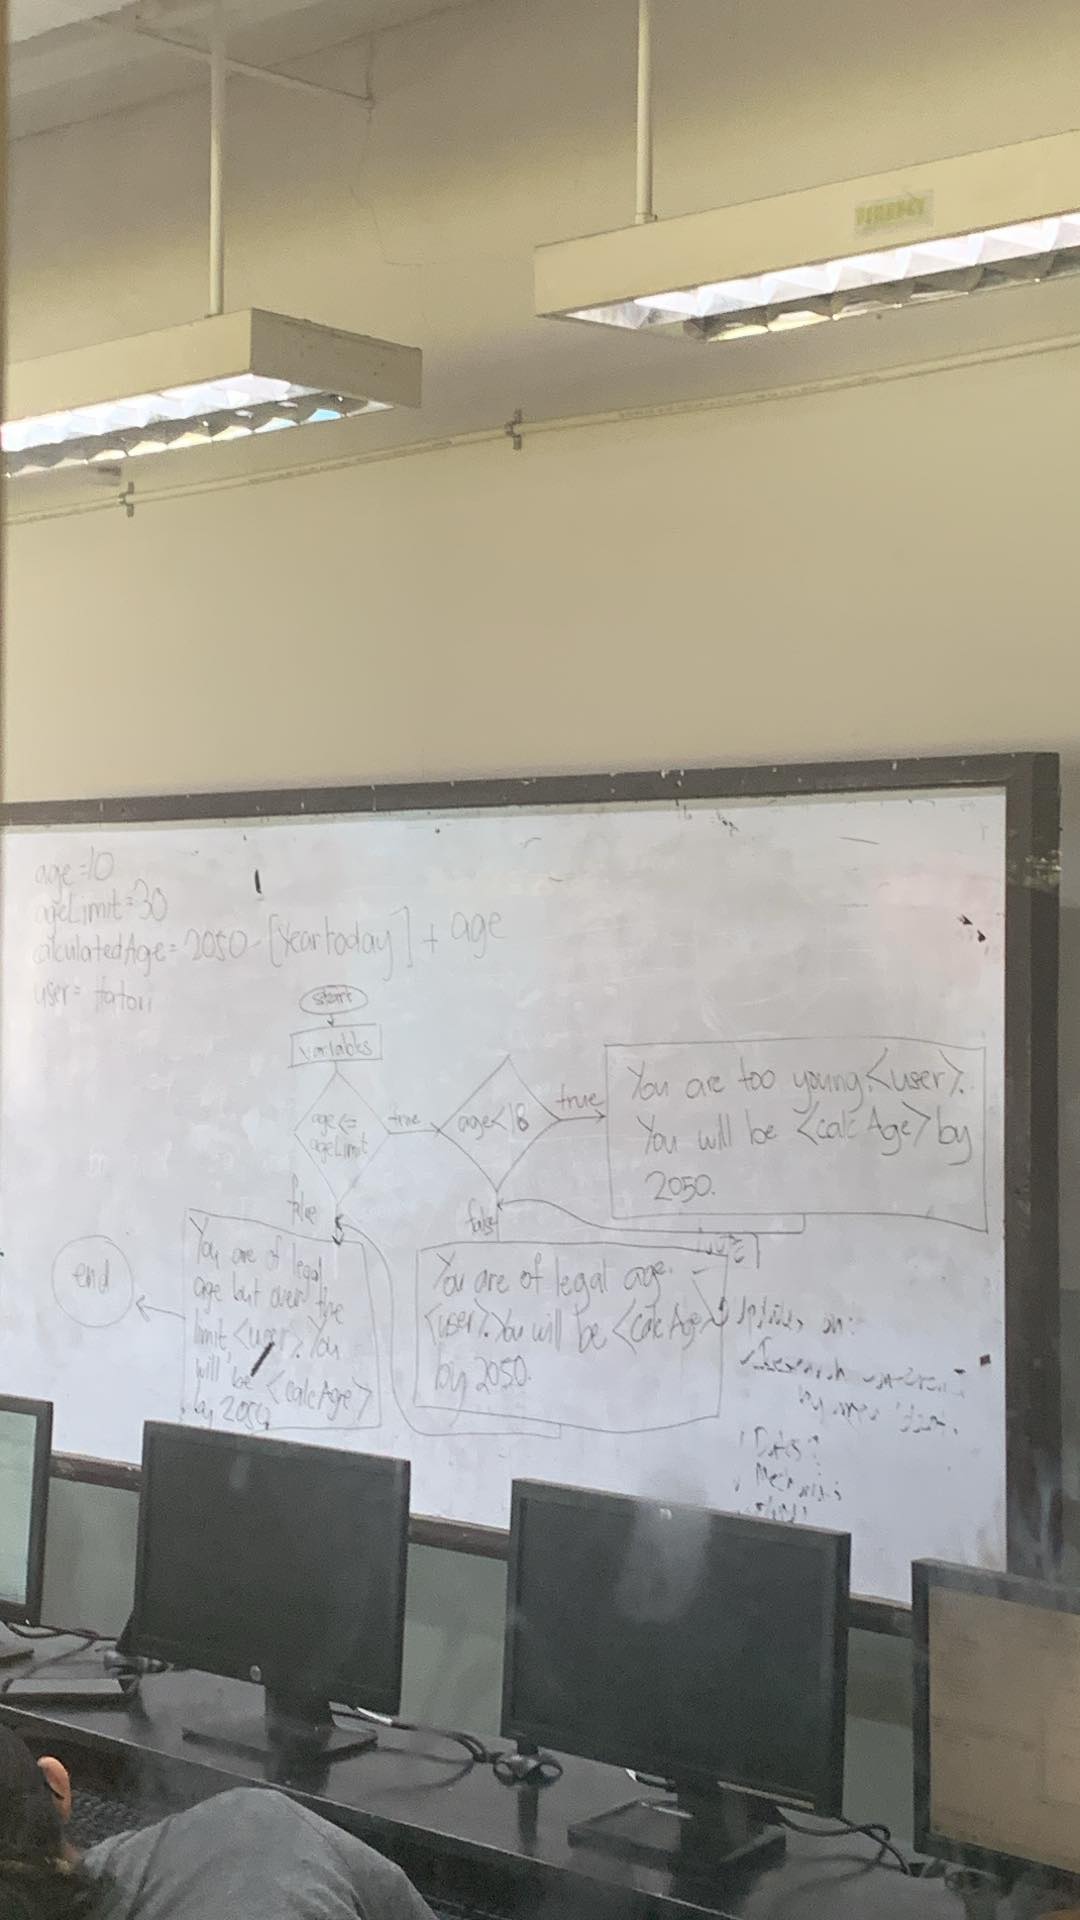 age=10
ageLimit=30
calculatedAge= 2050-[Year today] + age
user= Hatori
start
variables
age<=
ageLimit
true
age<18
true
You are too young, <user>.
You will be <calcAge> by
2050.
false
false
You are of legal
age but over the
limit, <user>. You
will be <calcAge>
by 2050
You are of legal age,
<user>. You will be <calcAge>
by 2050.
end
on:
Dates?